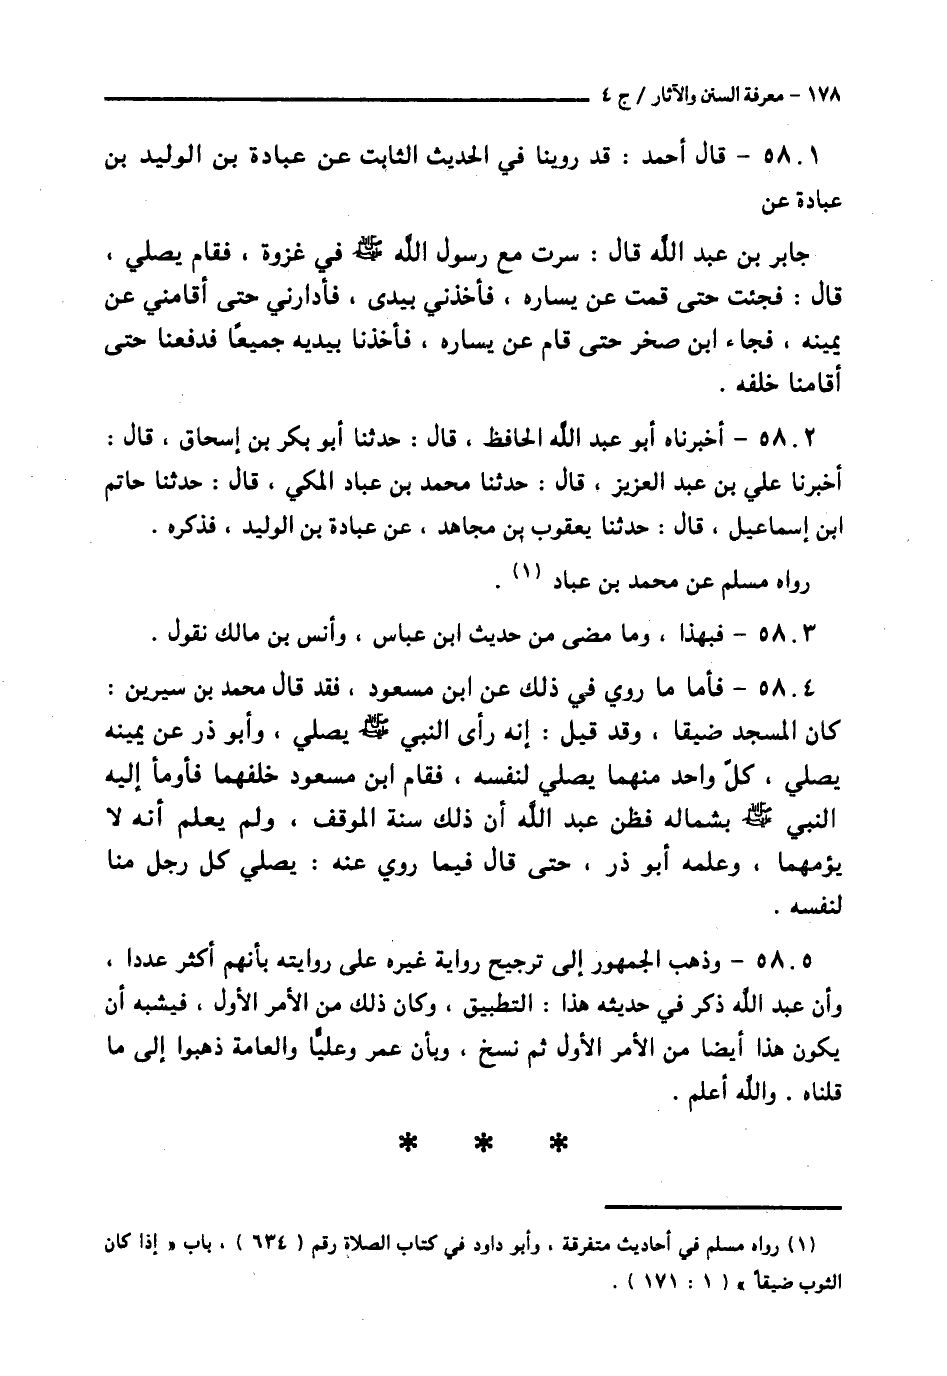 ١٧٨ - معرفة السنن والآثار / ج ٤
٥٨.١ - قال أحمد : قد روينا في الحديث الثابت عن عبادة بن الوليد بن
عبادة عن
جابر بن عبد الله قال : سرت مع رسول الله ﷺ في غزوة ، فقام يصلي ،
قال : فجئت حتى قمت عن يساره ، فأخذني بيدى ، فأدارني حتى أقامني عن
يمينه ، فجاء ابن صخر حتى قام عن يساره ، فأخذنا بيديه جميعًا فدفعنا حتى
أقامنا خلفه .
٥٨.٢ - أخبرناه أبو عبد الله الحافظ ، قال : حدثنا أبو بكر بن إسحاق ، قال :
أخبرنا علي بن عبد العزيز ، قال : حدثنا محمد بن عباد المكي ، قال : حدثنا حاتم
ابن إسماعيل ، قال : حدثنا يعقوب بن مجاهد ، عن عبادة بن الوليد ، فذكره .
رواه مسلم عن محمد بن عباد (١) .
٥٨.٣ - فبهذا ، وما مضى من حديث ابن عباس ، وأنس بن مالك نقول .
٥٨.٤ - فأما ما روي في ذلك عن ابن مسعود ، فقد قال محمد بن سيرين :
كان المسجد ضيقا ، وقد قيل : إنه رأى النبي ﷺ يصلي ، وأبو ذر عن يمينه
يصلي ، كلّ واحد منهما يصلي لنفسه ، فقام ابن مسعود خلفهما فأومأ إليه
النبي ﷺ بشماله فظن عبد الله أن ذلك سنة الموقف ، ولم يعلم أنه لا
يؤمهما ، وعلمه أبو ذر ، حتى قال فيما روي عنه : يصلي كل رجل منا
لنفسه .
٥٨.٥ - وذهب الجمهور إلى ترجيح رواية غيره على روايته بأنهم أكثر عددا ،
وأن عبد الله ذكر في حديثه هذا : التطبيق ، وكان ذلك من الأمر الأول ، فيشبه أن
يكون هذا أيضا من الأمر الأول ثم نسخ ، وبأن عمر وعليًّا والعامة ذهبوا إلى ما
قلناه . والله أعلم .
* * *
(١) رواه مسلم في أحاديث متفرقة ، وأبو داود في كتاب الصلاة رقم ( ٦٣٤ ) ، باب « إذا كان
الثوب ضيقاً » ( ١ : ١٧١ ) .